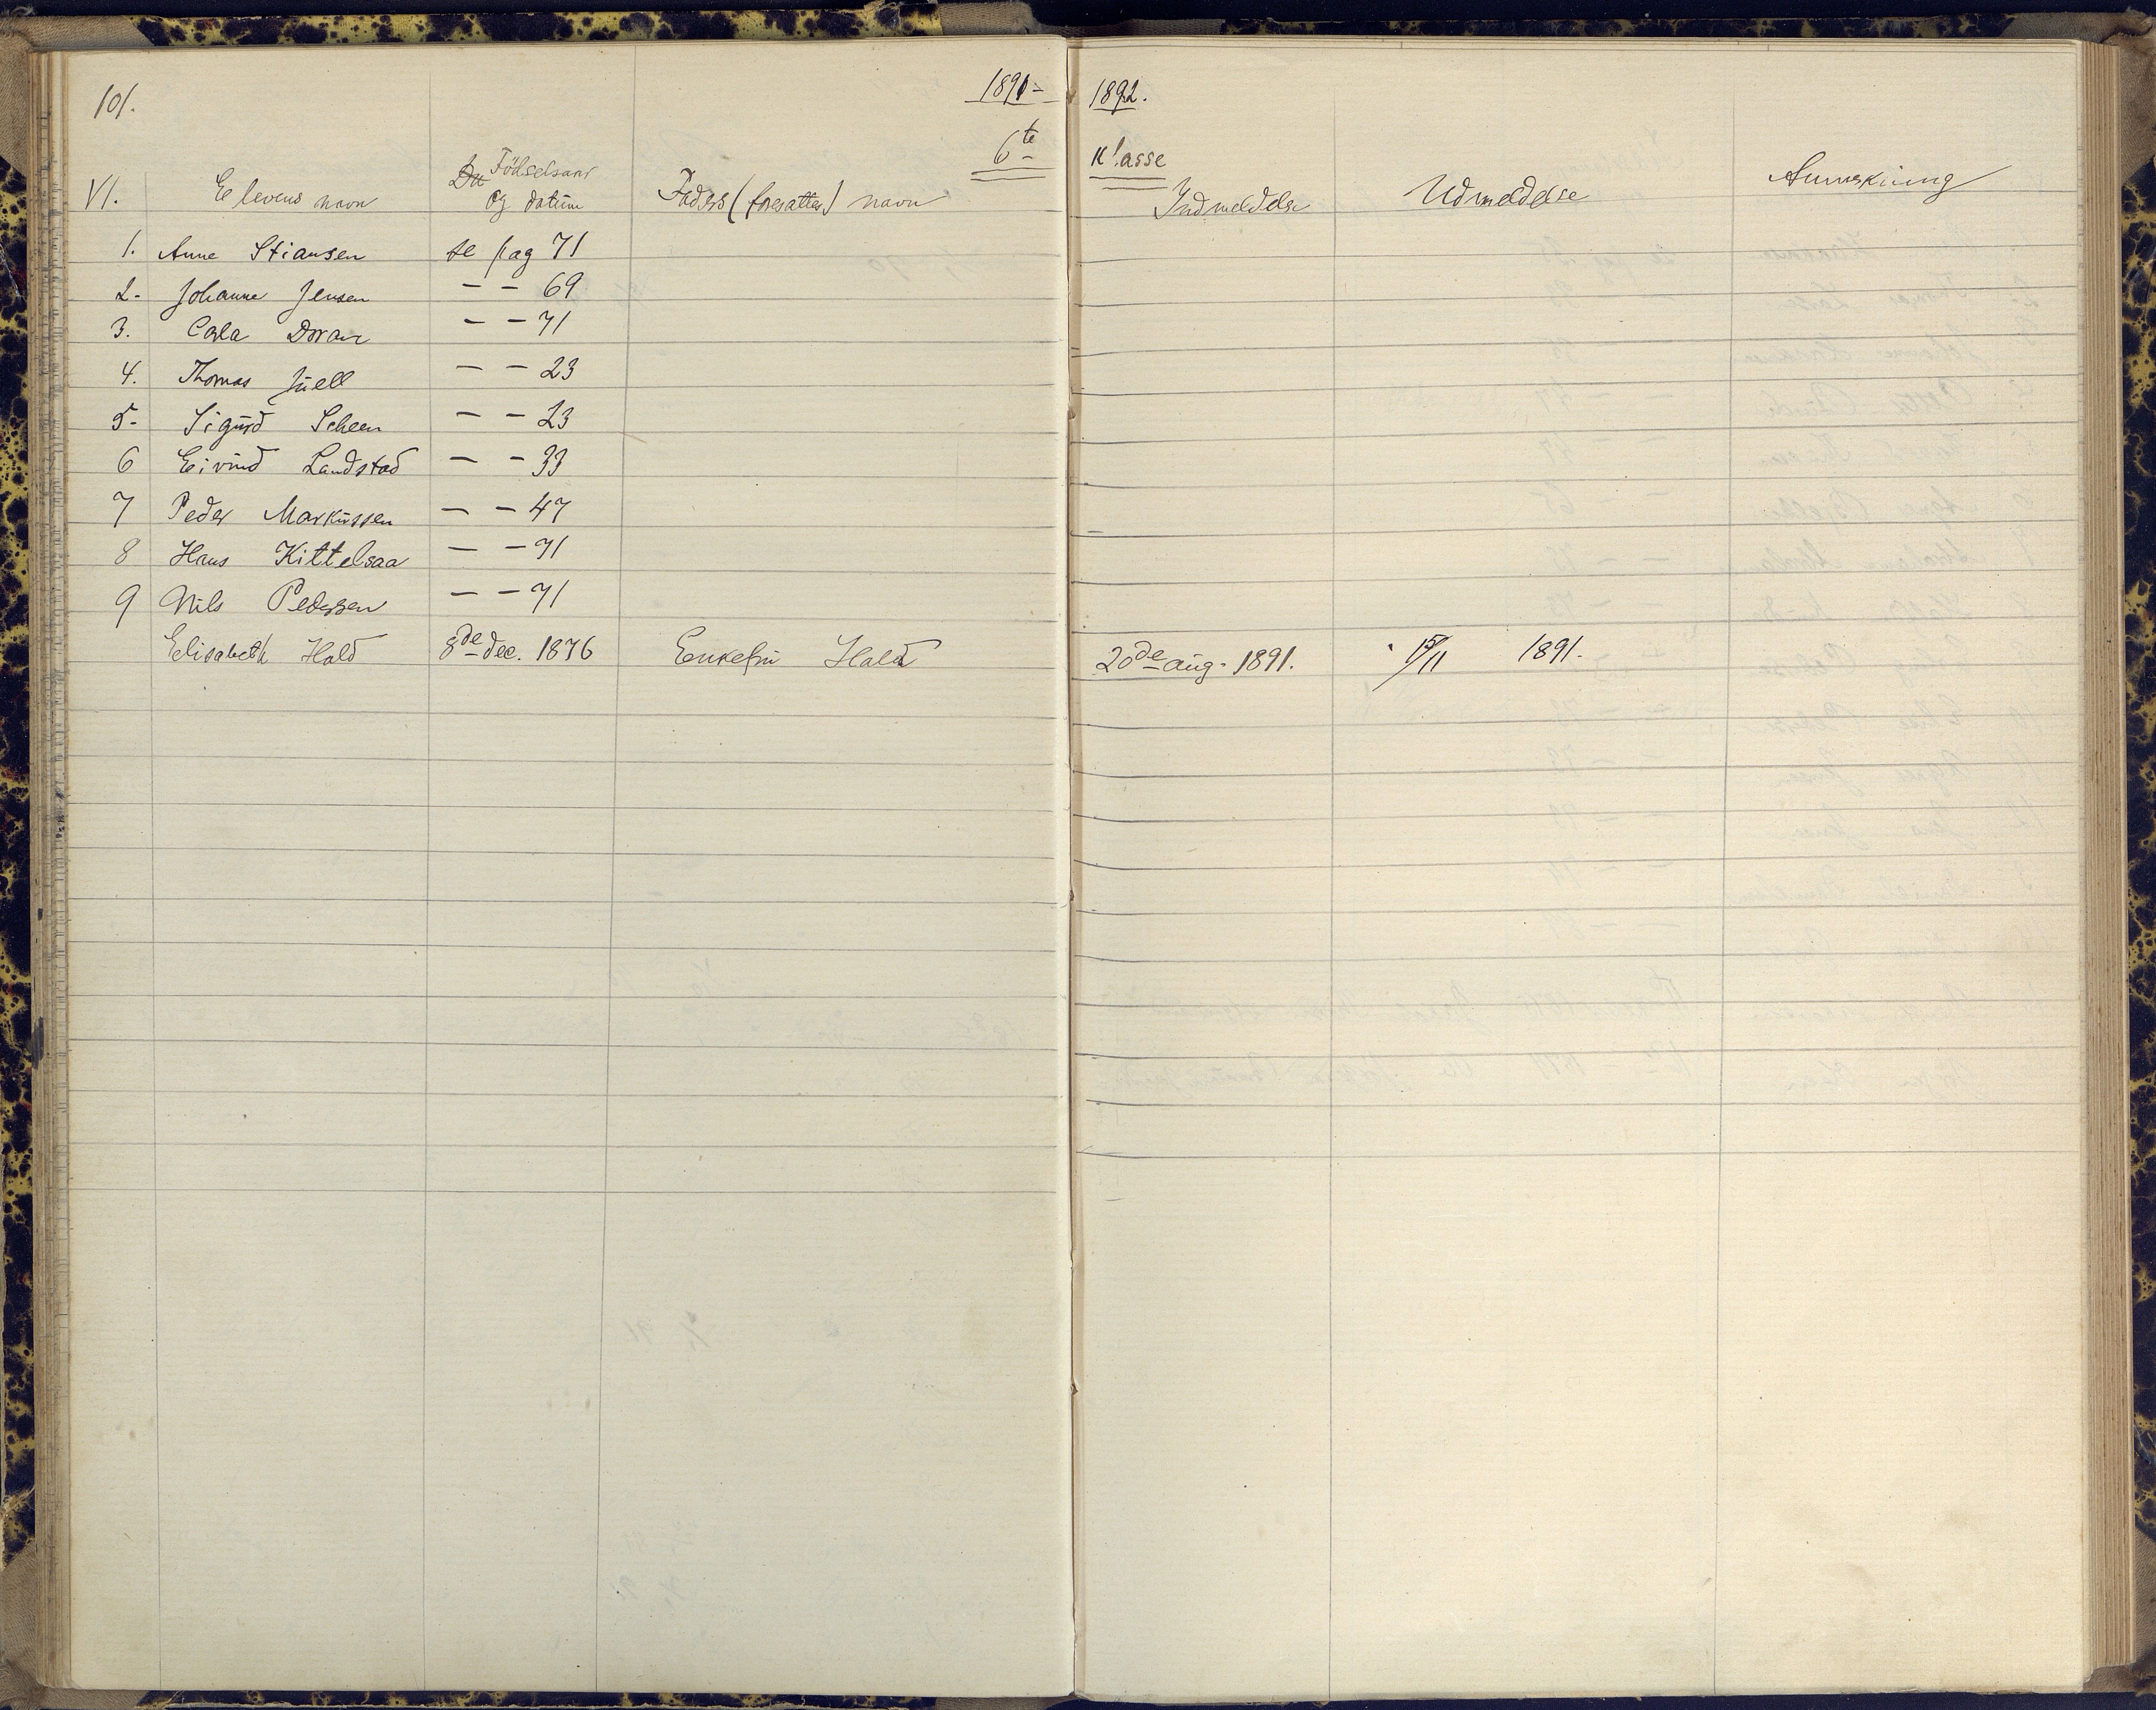 101.
1891-
1892.
6te
Klasse
VI.
Elevens navn
Födselsaar
og datum
Faders (foresattes) navn
Indmeldelse
Udmeldelse
Anmerkning
1. Anne Stiansen se pag 71
2- Johanne Jensen — — 69
3. Carla Doran — — 71
4. Thomas Juell — — 23
5- Sigurd Scheen — — 23
6 Eivind Landstad — — 33
7 Peder Markussen — — 47
8 Hans Kittelsaa — — 71
9 Nils Pedersen — — 71
Elisabeth Hald 8de dec. 1876 Enkefru Hald 20de aug. 1891. 15/11 1891.